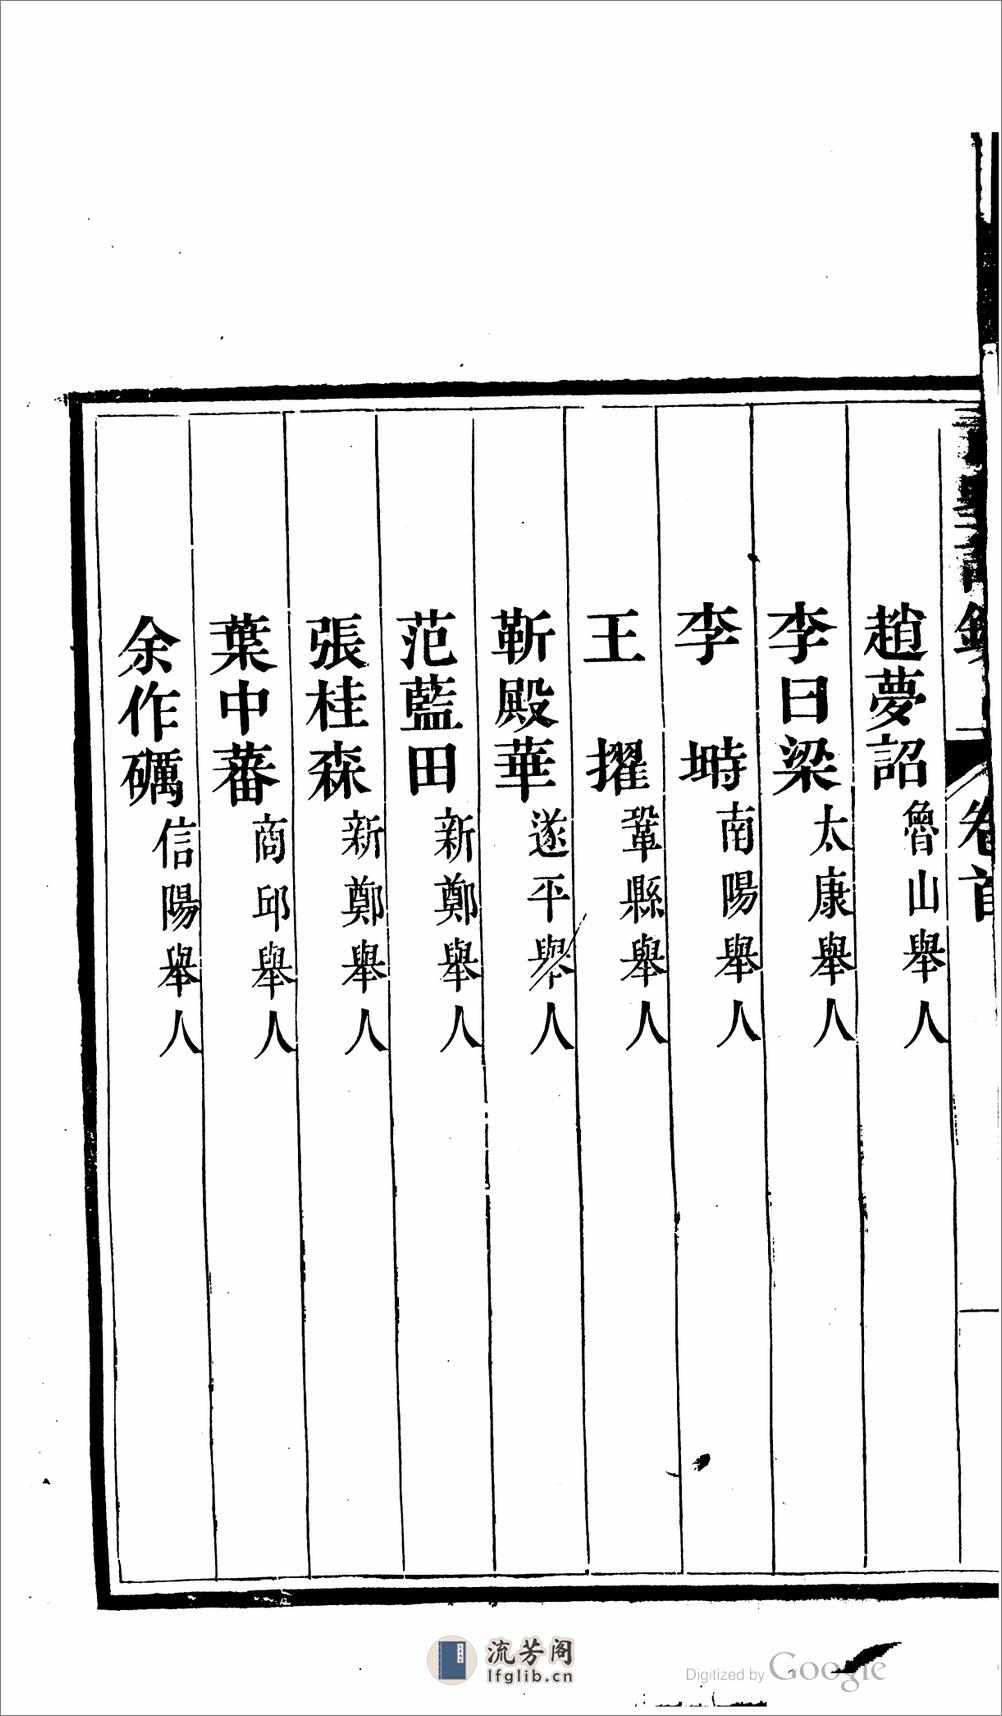 卷首
趙夢詔魯山舉人
李日梁太康舉人
李　塒南陽舉人
王　擢鞏縣舉人
靳殿華遂平舉人
范藍田新鄭舉人
張桂森新鄭舉人
葉中蕃商邱舉人
余作礪信陽舉人
流芳阁
lfglib.cn
Digitized by Google